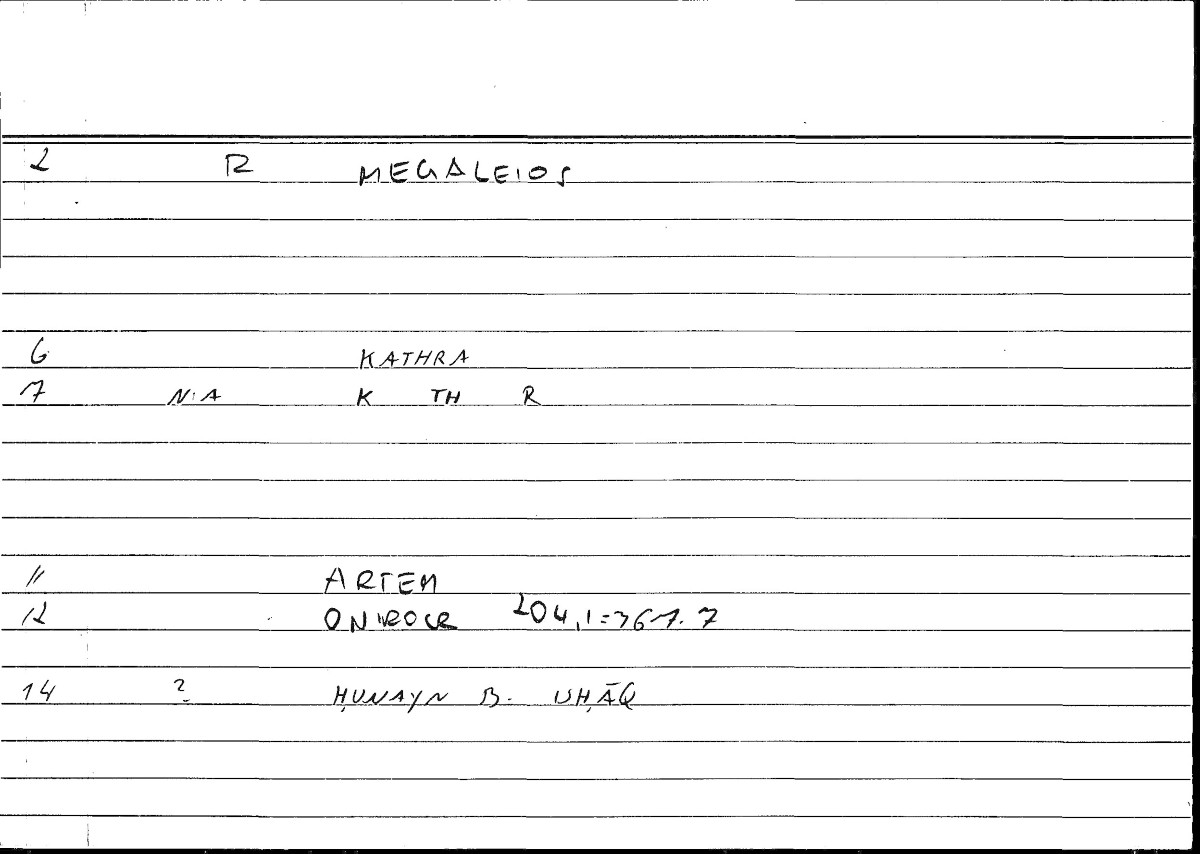 2 R MEGALEIOS
6 KATHRA
7 N:A K TH R
11 ARTEM
12 ONIROCR 204,1=367.7
14 ? ḤUNAYN B. ISḤĀQ